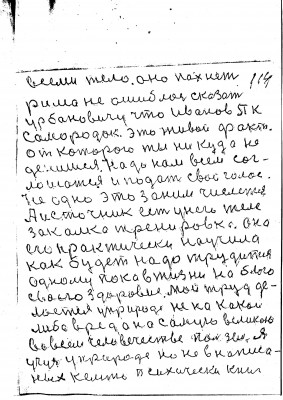 всеми тело. оно пахнет 114
рима не ошиблся сказат
урбановичу что Иванов П К
Самородок. Это живой факт.
от которого ты никуда не
денишися. Надо нам всем сог-
ласится и подат свой голос.
Не одно это за ним числется
Листочник ест у него тело
закалка тренировка. она
его практически научила
как будет надо трудится
одному пока в жизни на благо
своего здоровие. мой труд де-
лается у природе не на какой
либо вред а на самую великою
во всем человечестве пользу. Я
учус у природе но не в написа-
ных кемто психически книг